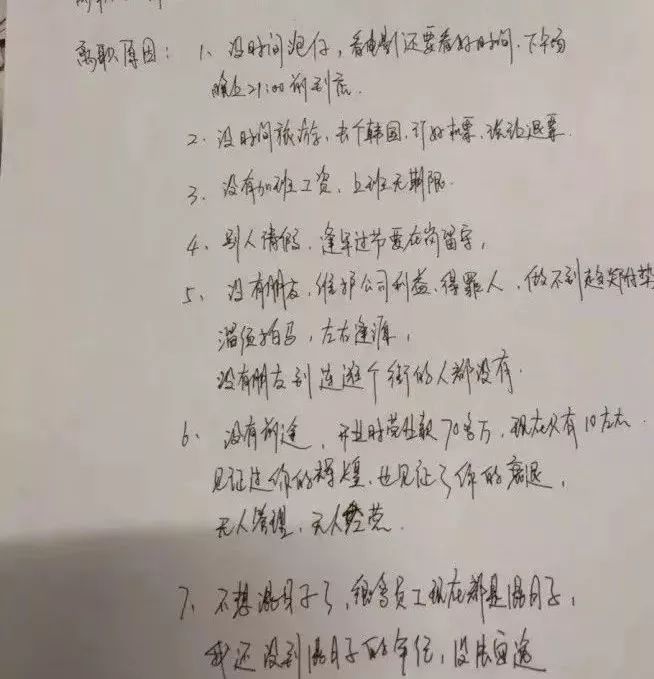 离职原因：1、没时间泡仔，看电影还要看好时间，下午场
晚上21:00前到店。
2、没时间旅游，去个韩国，订好机票，说让退票。
3、没有加班工资，上班无期限。
4、别人请假、逢年过节要在岗留守，
5、没有朋友，维护公司利益、得罪人，做不到趋炎附势
溜须拍马，左右逢源，
没有朋友到连逛个街的人都没有。
6、没有前途，开业时营业款70多万，现在只有10万左右
见证过你的辉煌，也见证了你的衰退，
无人管理，无人经营。
7、不想混日子了，很多员工现在都是混日子，
我还没到混日子的年纪，没法